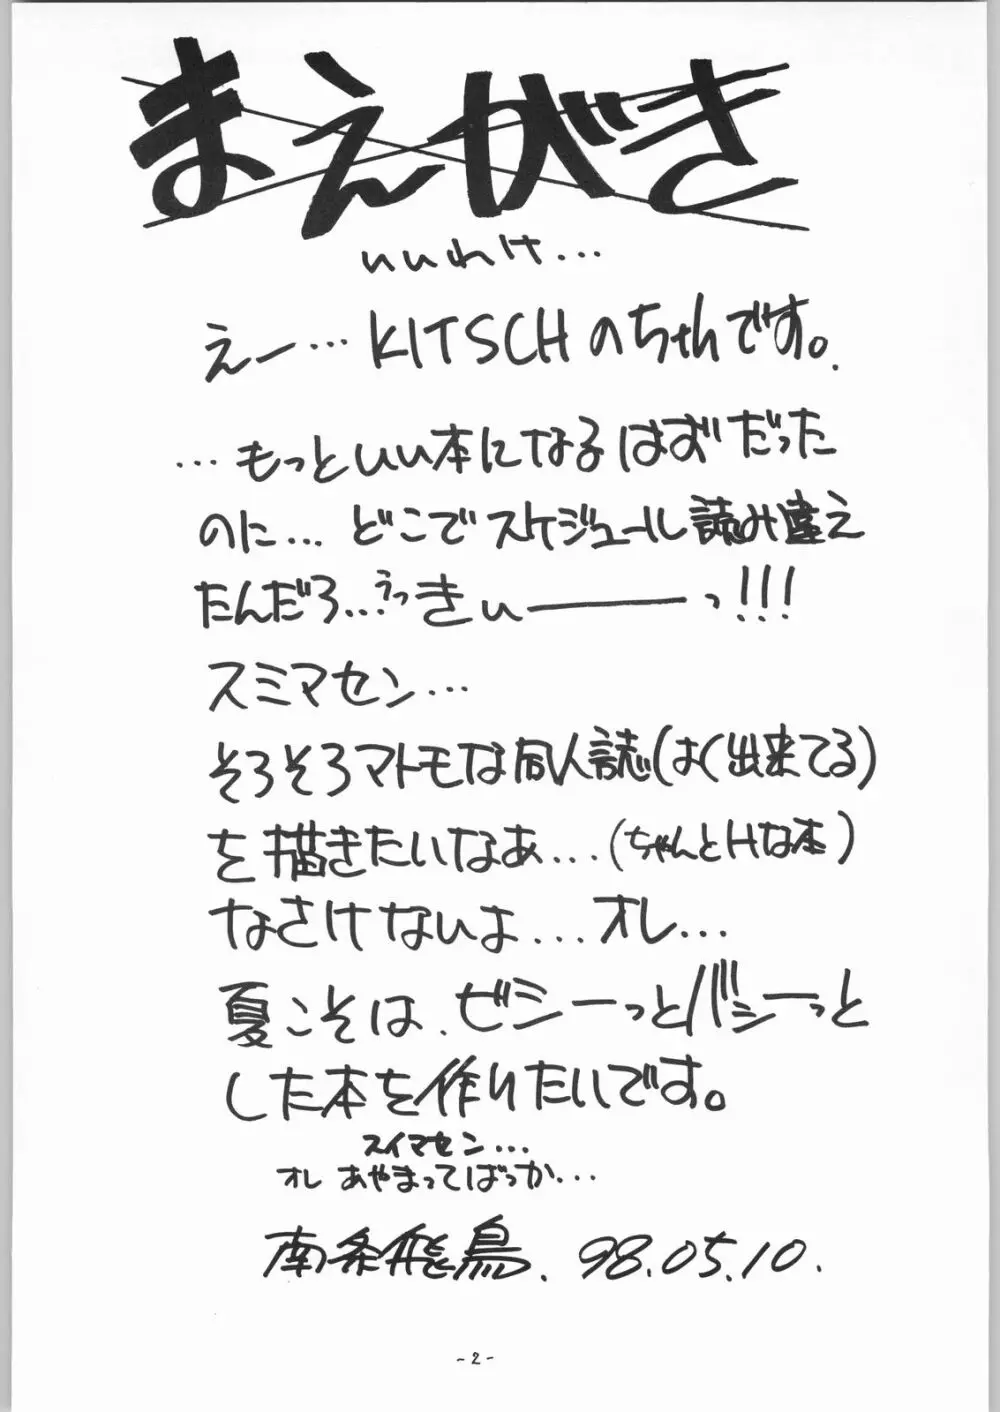 まえがき
いいわけ...
えー… KITSCHのちゃんです。
…もっといい本になるはずだった
のに… どこでスケジュール読み違え
たんだろ...えっきぃ――――っ!!!
スミマセン…
そろそろマトモな同人誌(はく出来てる)
を描きたいなあ...(ちゃんとHな本)
なさけないよ...オレ...
夏こそは、ビシーっとバシーっと
した本を作りたいです。
スイマセン...
オレ あやまってばっか...
南条飛鳥. 98.05.10.
-2-